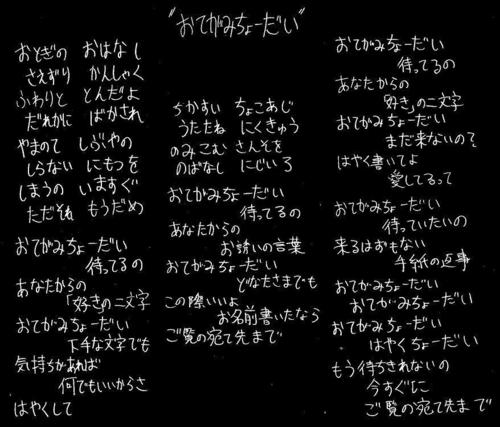 "おてがみちょーだい"
おとぎの おはなし
さえずり かんしゃく
ふわりと とんだよ
だれかに ばかされ
やまのて しぶやの
しらない にもつを
しまうの いますぐ
ただそれ もうだめ
おてがみちょーだい
待ってるの
あなたからの
「好き」の二文字
おてがみちょーだい
下手な文字でも
気持ちがあれば
何でもいいからさ
はやくして
ちかすい ちょこあじ
うたたね にくきゅう
のみこむ さんそを
のばなし にじいろ
おてがみちょーだい
待ってるの
あなたからの
お誘いの言葉
おてがみちょーだい
どなたさまでも
この際いいよ
お名前書いたなら
ご覧の宛て先まで
おてがみちょーだい
待ってるの
あなたからの
「好き」の二文字
おてがみちょーだい
まだ来ないの?
はやく書いてよ
愛してるって
おてがみちょーだい
待っていたいの
来るはずもない
手紙の返事
おてがみちょーだい
おてがみちょーだい
おてがみちょーだい
はやくちょーだい
もう待ちきれないの
今すぐに
ご覧の宛て先まで